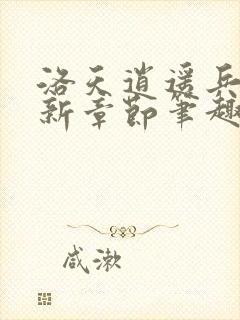 洛天逍遥兵
新章节笔趣
咸漱